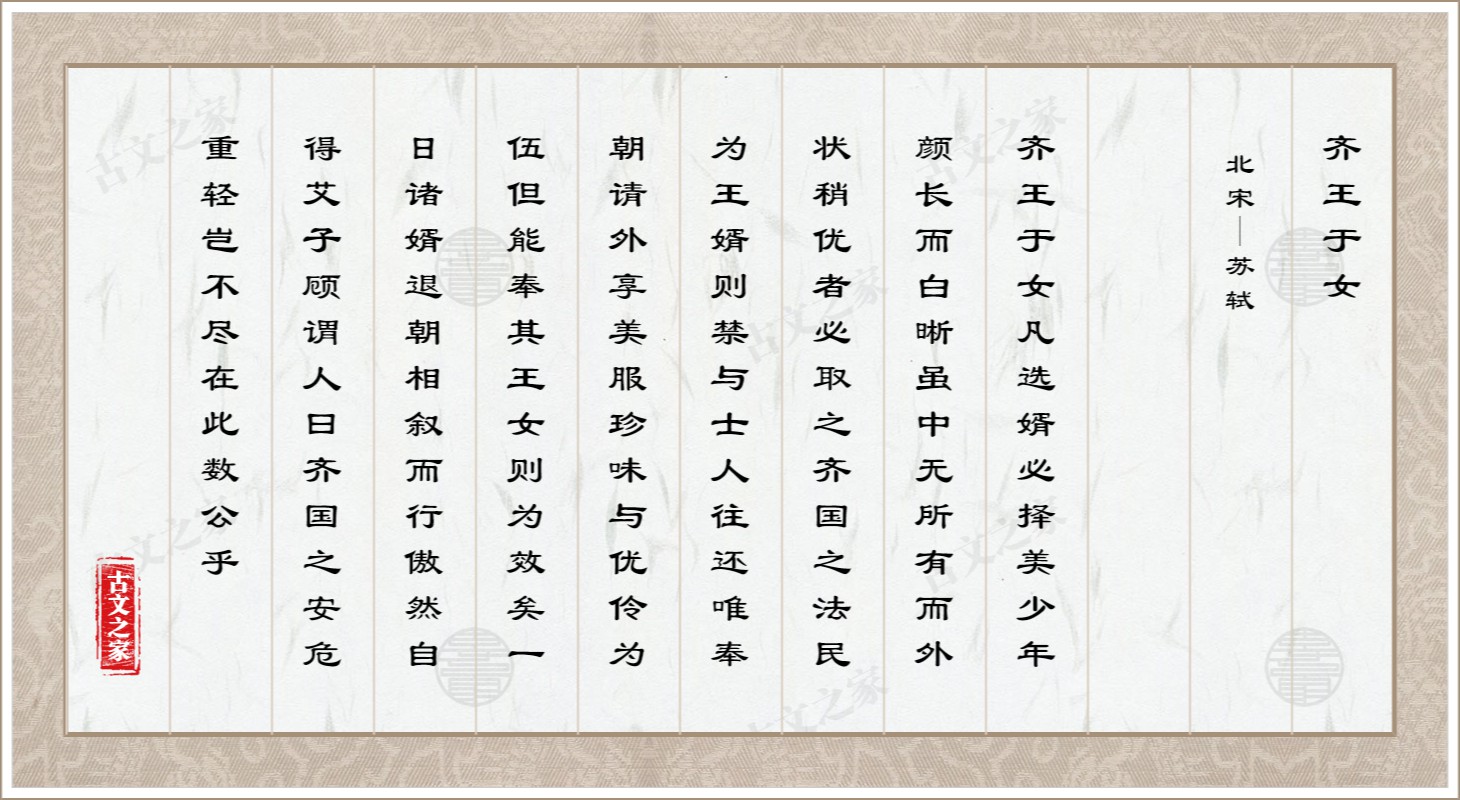 齐王于女
北宋—苏轼
齐王于女凡选婿必择美少年
颜长而白晰虽中无所有而外
状稍优者必取之齐国之法民
为王婿则禁与士人往还唯奉
朝请外享美服珍味与优伶为
伍但能奉其王女则为效矣一
日诸婿退朝相叙而行傲然自
得艾子顾谓人曰齐国之安危
重轻岂不尽在此数公乎
古文之家
古文之家
古文之家
古文之家
古文之家
古文之家
古文之家